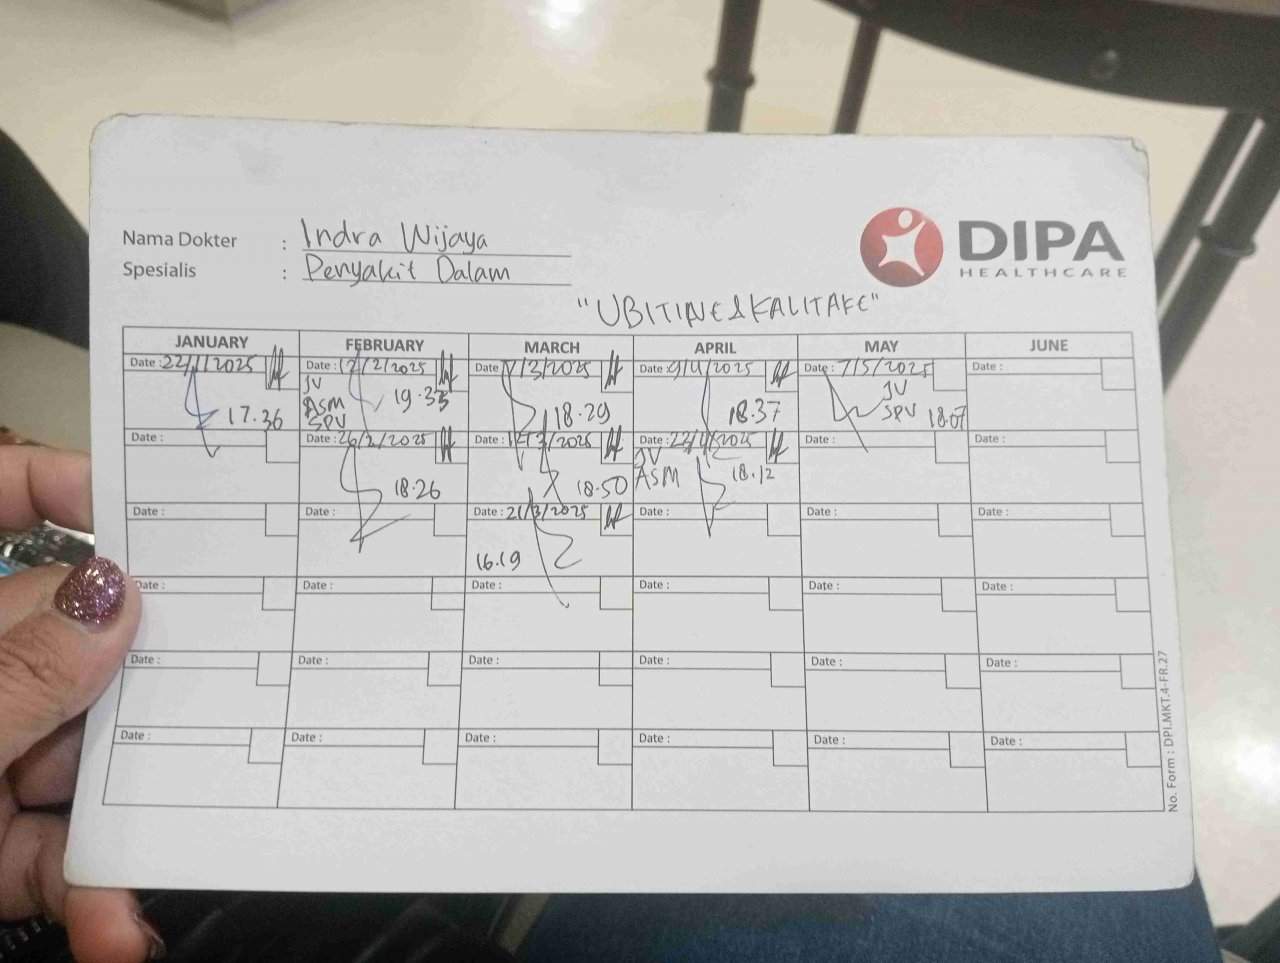 Nama Dokter : Indra Wijaya
Spesialis : Penyakit Dalam
DIPA
HEALTHCARE
"UBITINE & KALITAKE"
JANUARY FEBRUARY MARCH APRIL MAY JUNE
Date : 22/1/2025 Date : 12/2/2025 Date : /3/2025 Date : 9/4/2025 Date : 7/5/2025 Date :
JV JV
ASM 19.33 SPV 18.07
17.36 SPV 18.29 18.37
Date : Date : 26/2/2025 Date : 12/3/2025 Date : 22/4/2025 Date : Date :
JV
18.26 18.50 ASM 18.12
Date : Date : Date : 21/3/2025 Date : Date : Date :
16.19
Date : Date : Date : Date : Date : Date :
Date : Date : Date : Date : Date : Date :
Date : Date : Date : Date : Date : Date :
No. Form : DPI.MKT.4-FR.27